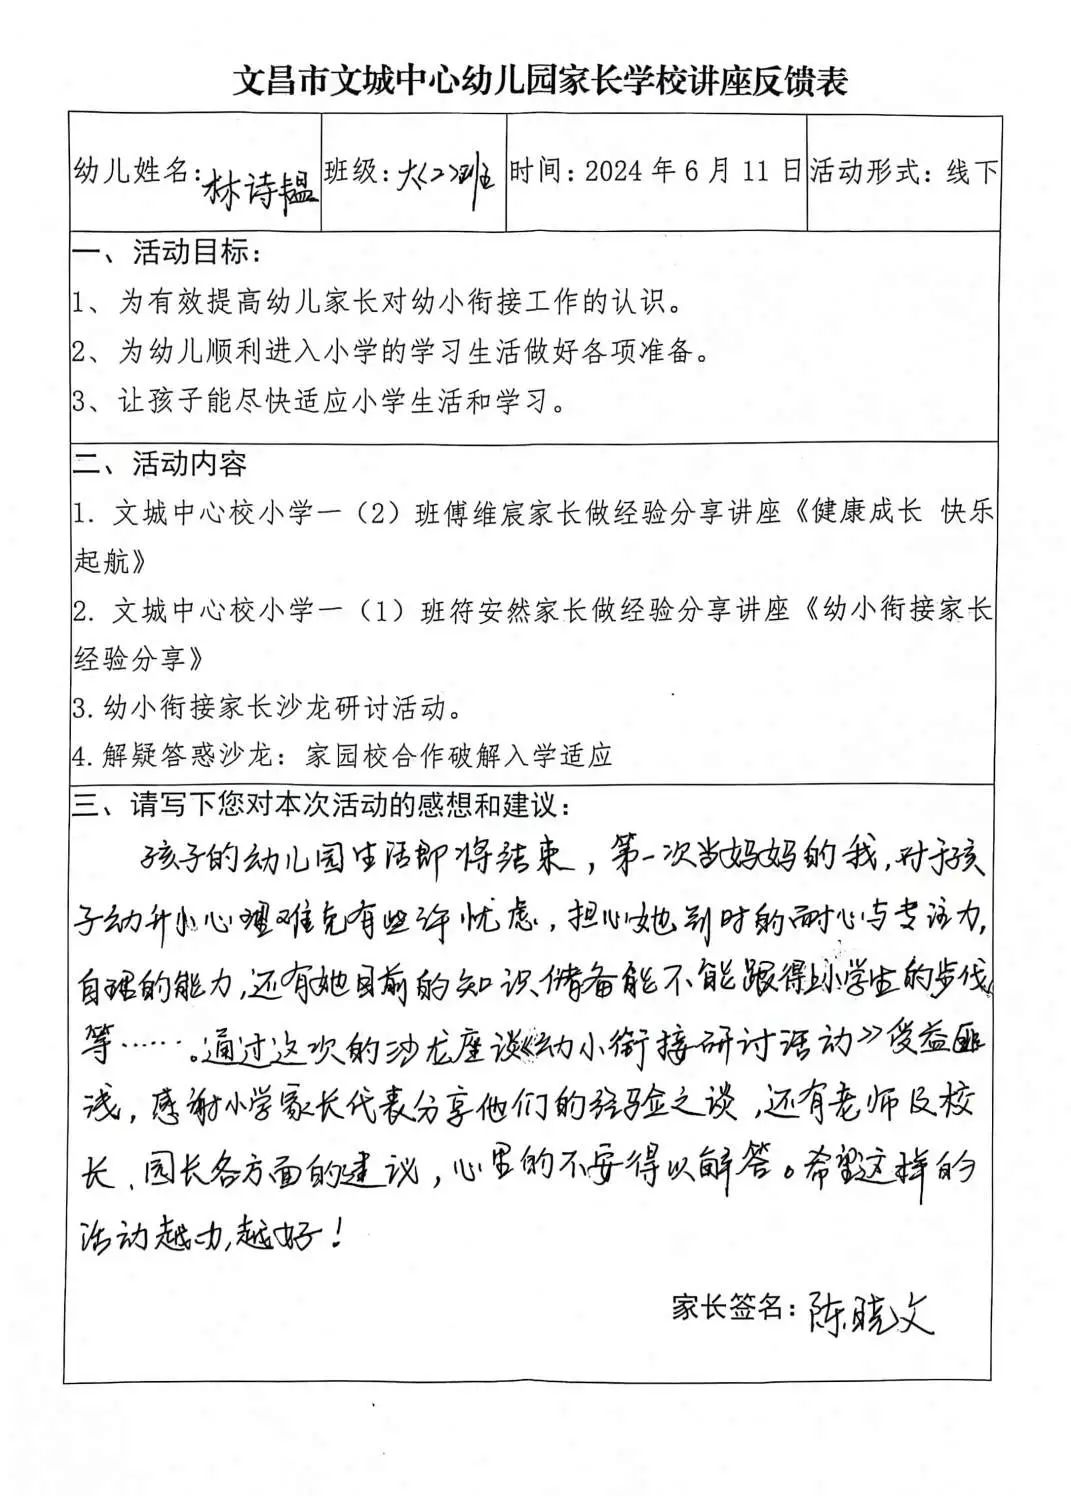 文昌市文城中心幼儿园家长学校讲座反馈表
幼儿姓名：林诗韫 班级：大（2）班 时间：2024 年 6 月 11 日 活动形式：线下
一、活动目标：
1、为有效提高幼儿家长对幼小衔接工作的认识。
2、为幼儿顺利进入小学的学习生活做好各项准备。
3、让孩子能尽快适应小学生活和学习。
二、活动内容
1. 文城中心校小学一（2）班傅维宸家长做经验分享讲座《健康成长 快乐
起航》
2. 文城中心校小学一（1）班符安然家长做经验分享讲座《幼小衔接家长
经验分享》
3.幼小衔接家长沙龙研讨活动。
4.解疑答惑沙龙：家园校合作破解入学适应
三、请写下您对本次活动的感想和建议：
孩子的幼儿园生活即将结束，第一次当妈妈的我，对于孩
子幼升小心理难免有些许忧虑，担心她到时的耐心与专注力，
自理的能力，还有她目前的知识储备能不能跟得上小学生的步伐
等……。通过这次的沙龙座谈《幼小衔接研讨活动》受益匪
浅，感谢小学家长代表分享他们的经验之谈，还有老师及校
长、园长各方面的建议，心里的不安得以解答。希望这样的
活动越办，越好！
家长签名：陈晓文